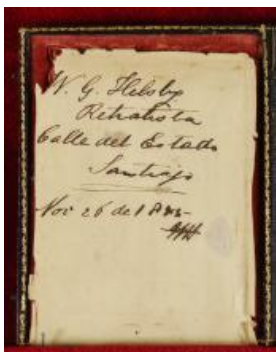 W. G. Helsby
Retratista
Calle del Estado
Santiago
Nov 26 de